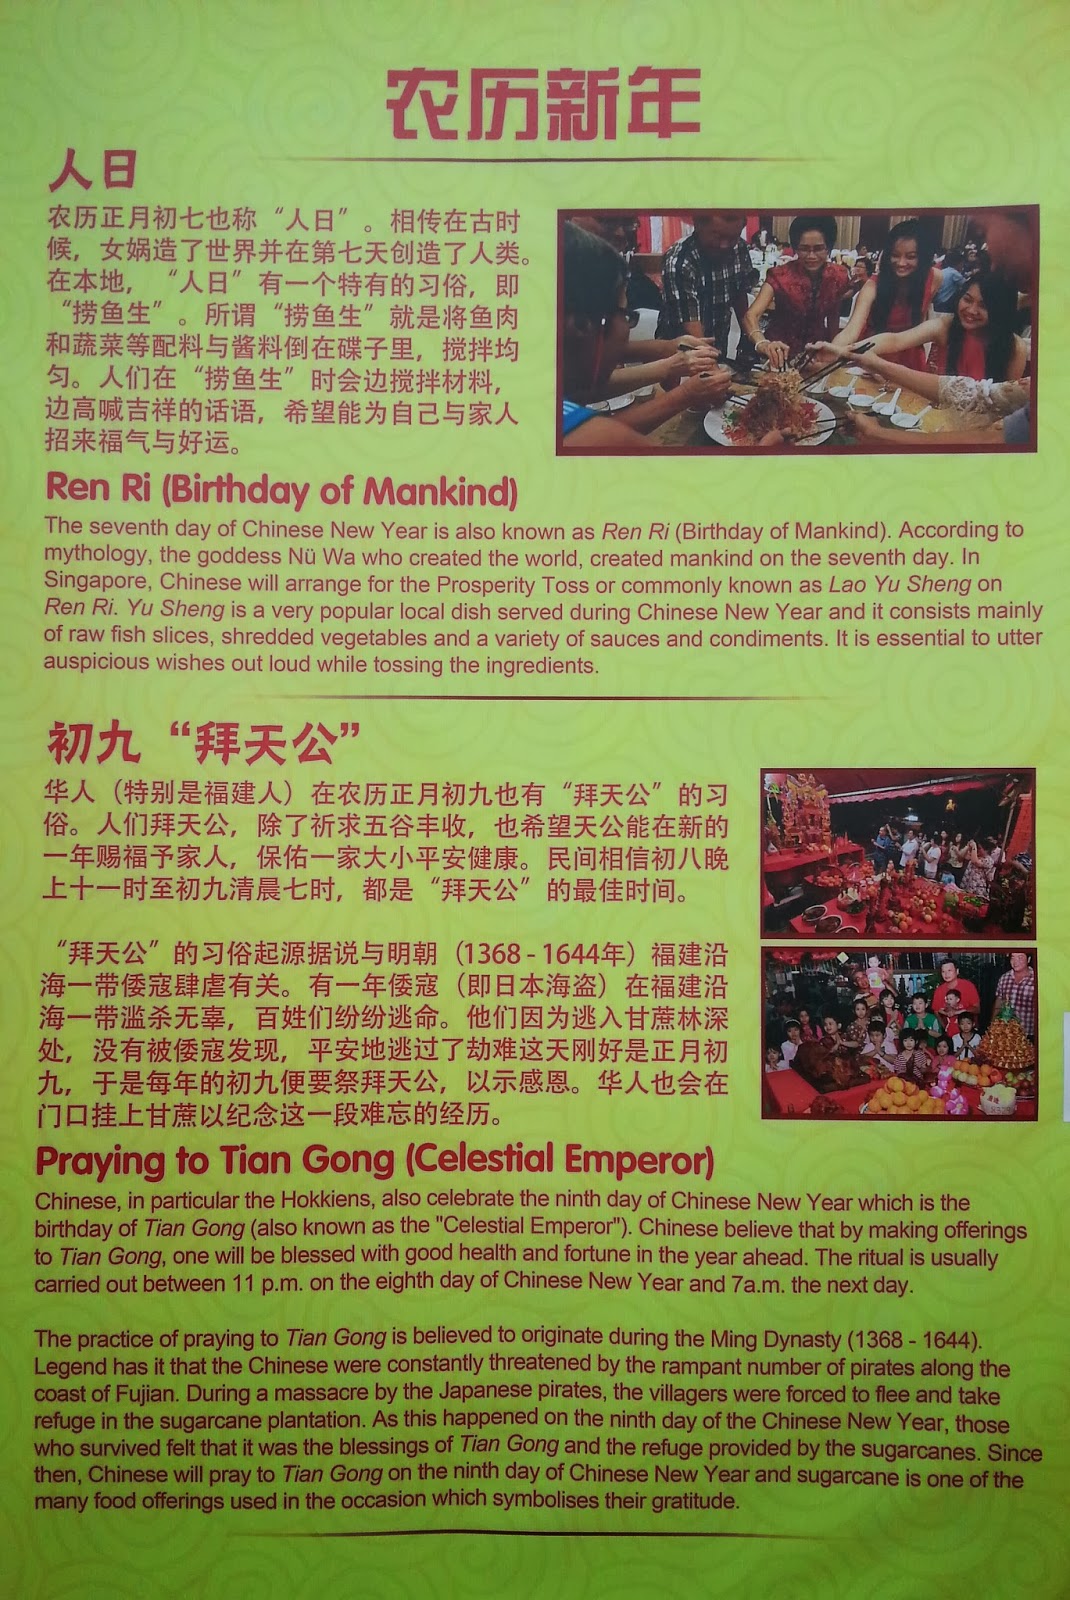 农历新年
人日
农历正月初七也称“人日”。相传在古时
候，女娲造了世界并在第七天创造了人类。
在本地，“人日”有一个特有的习俗，即
“捞鱼生”。所谓“捞鱼生”就是将鱼肉
和蔬菜等配料与酱料倒在碟子里，搅拌均
匀。人们在“捞鱼生”时会边搅拌材料，
边高喊吉祥的话语，希望能为自己与家人
招来福气与好运。
Ren Ri (Birthday of Mankind)
The seventh day of Chinese New Year is also known as Ren Ri (Birthday of Mankind). According to
mythology, the goddess Nü Wa who created the world, created mankind on the seventh day. In
Singapore, Chinese will arrange for the Prosperity Toss or commonly known as Lao Yu Sheng on
Ren Ri. Yu Sheng is a very popular local dish served during Chinese New Year and it consists mainly
of raw fish slices, shredded vegetables and a variety of sauces and condiments. It is essential to utter
auspicious wishes out loud while tossing the ingredients.
初九“拜天公”
华人（特别是福建人）在农历正月初九也有“拜天公”的习
俗。人们拜天公，除了祈求五谷丰收，也希望天公能在新的
一年赐福予家人，保佑一家大小平安健康。民间相信初八晚
上十一时至初九清晨七时，都是“拜天公”的最佳时间。
“拜天公”的习俗起源据说与明朝（1368 - 1644年）福建沿
海一带倭寇肆虐有关。有一年倭寇（即日本海盗）在福建沿
海一带滥杀无辜，百姓们纷纷逃命。他们因为逃入甘蔗林深
处，没有被倭寇发现，平安地逃过了劫难这天刚好是正月初
九，于是每年的初九便要祭拜天公，以示感恩。华人也会在
门口挂上甘蔗以纪念这一段难忘的经历。
Praying to Tian Gong (Celestial Emperor)
Chinese, in particular the Hokkiens, also celebrate the ninth day of Chinese New Year which is the
birthday of Tian Gong (also known as the "Celestial Emperor"). Chinese believe that by making offerings
to Tian Gong, one will be blessed with good health and fortune in the year ahead. The ritual is usually
carried out between 11 p.m. on the eighth day of Chinese New Year and 7a.m. the next day.
The practice of praying to Tian Gong is believed to originate during the Ming Dynasty (1368 - 1644).
Legend has it that the Chinese were constantly threatened by the rampant number of pirates along the
coast of Fujian. During a massacre by the Japanese pirates, the villagers were forced to flee and take
refuge in the sugarcane plantation. As this happened on the ninth day of the Chinese New Year, those
who survived felt that it was the blessings of Tian Gong and the refuge provided by the sugarcanes. Since
then, Chinese will pray to Tian Gong on the ninth day of Chinese New Year and sugarcane is one of the
many food offerings used in the occasion which symbolises their gratitude.